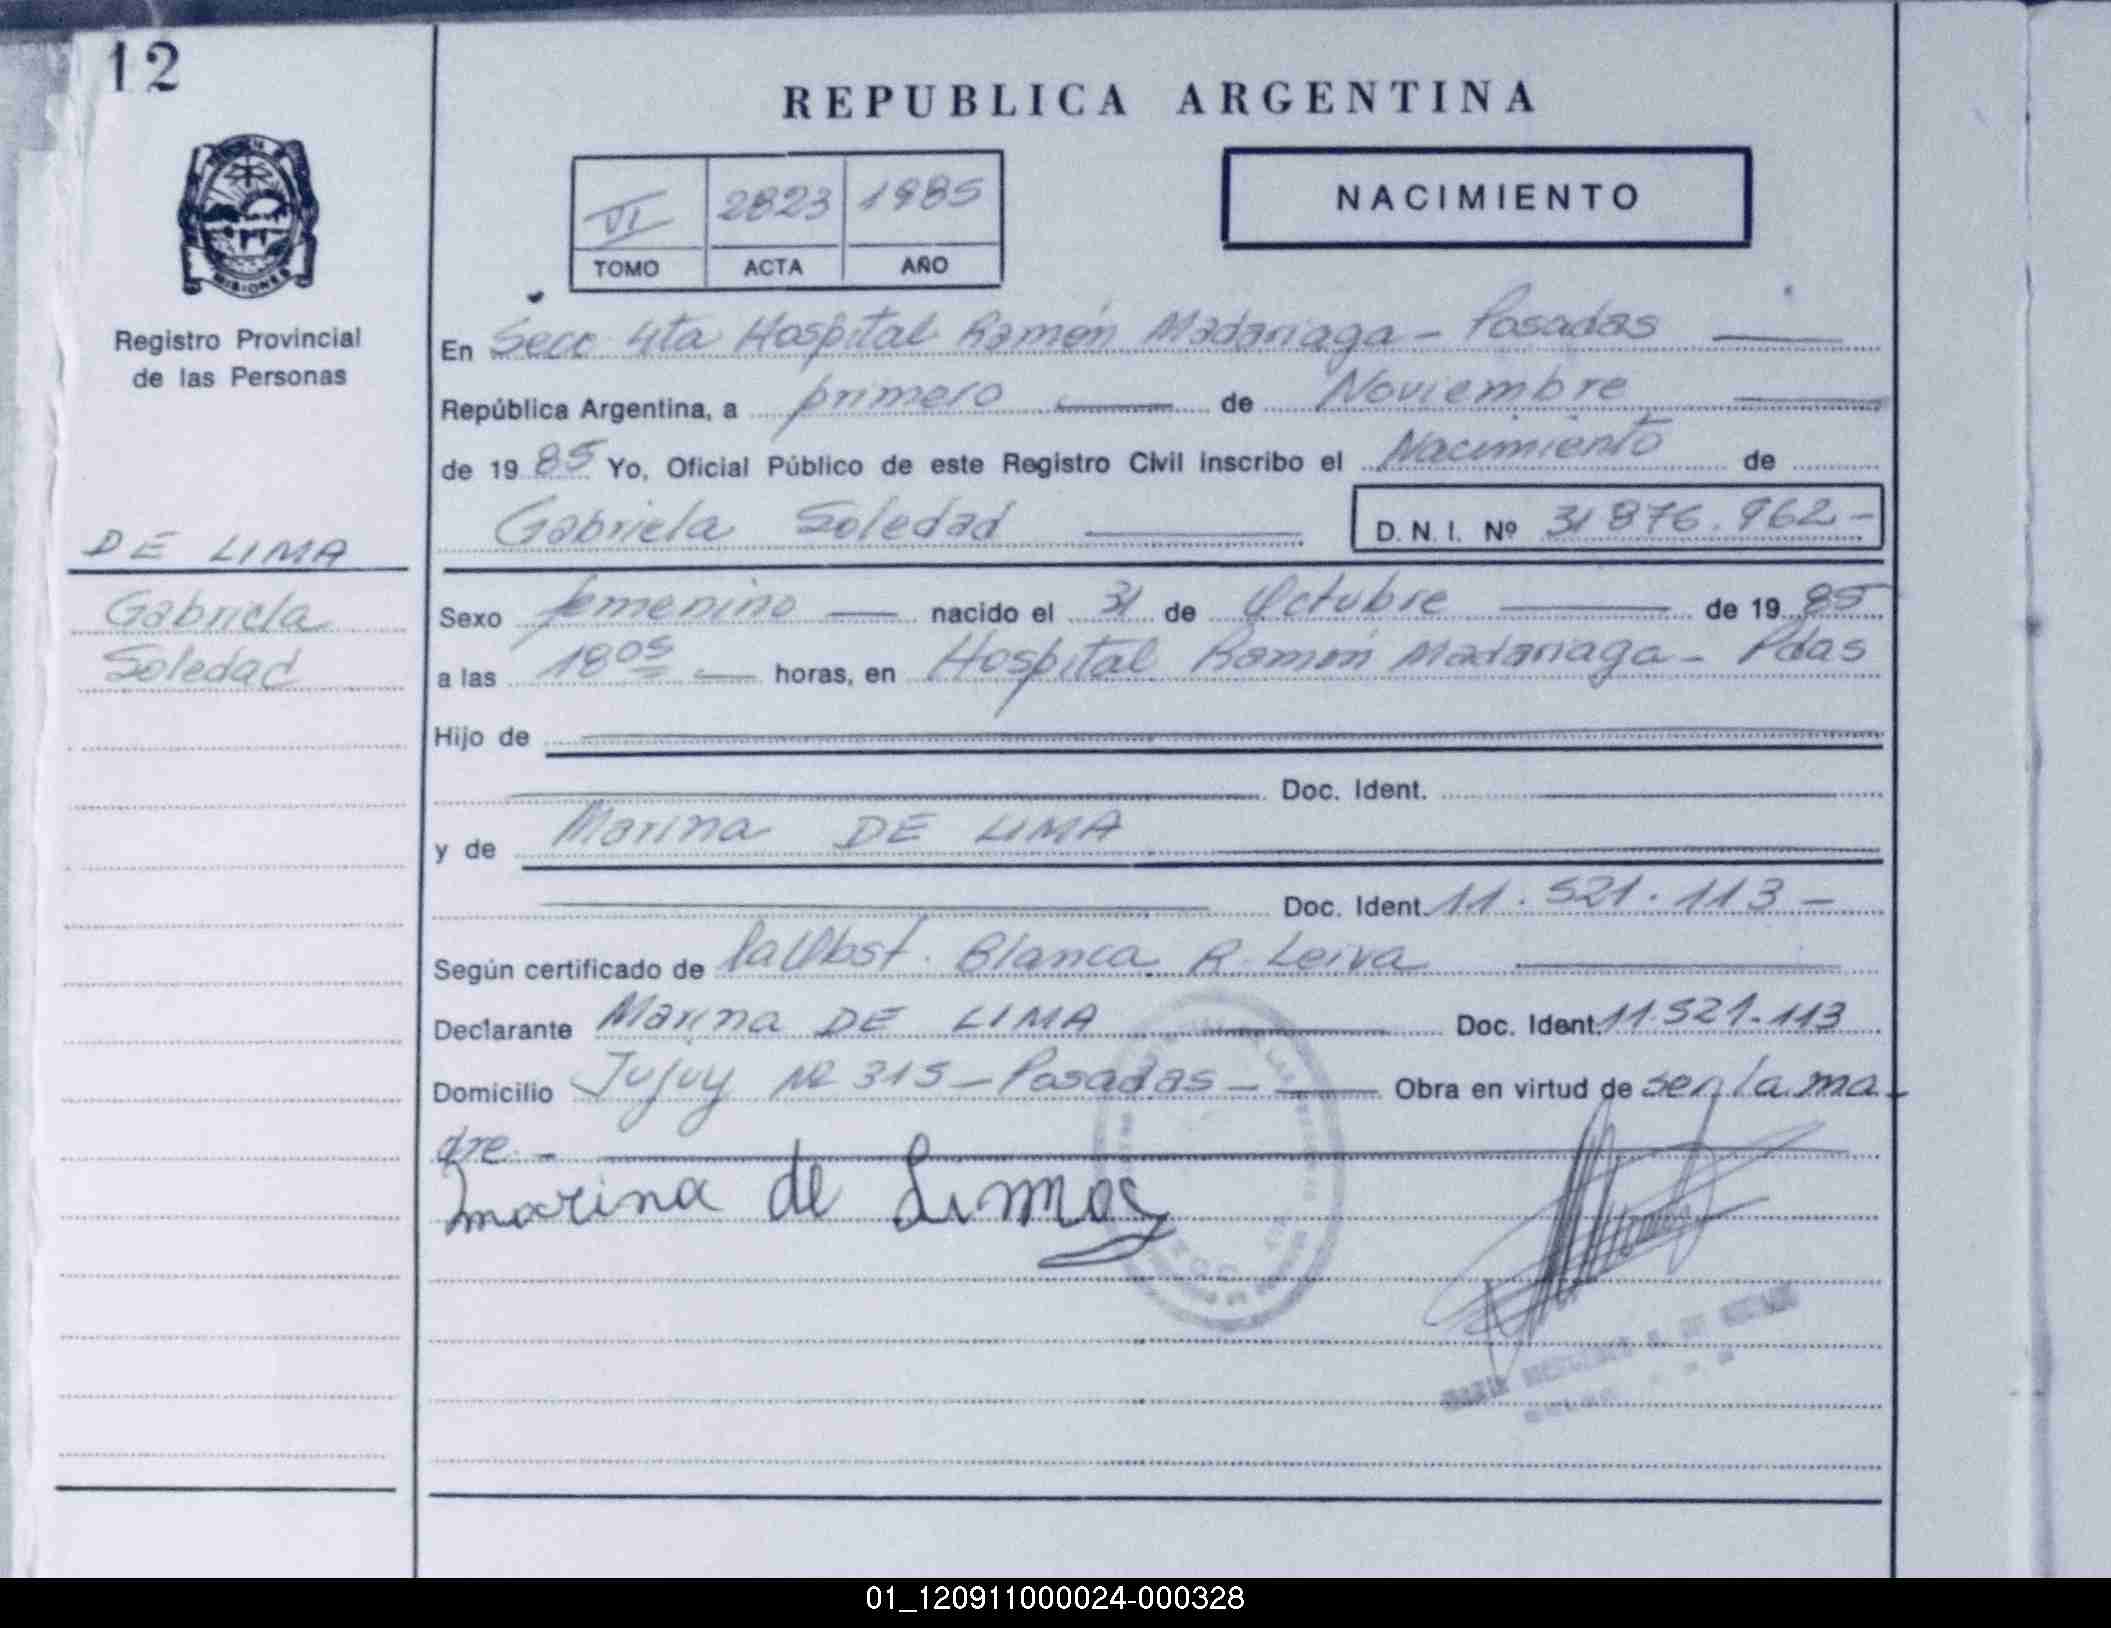 12
REPUBLICA ARGENTINA
NACIMIENTO
VI 2823 1985
TOMO ACTA AÑO
MISIONES
Registro Provincial
de las Personas
En Secc 4ta Hospital Ramón Madariaga - Posadas
República Argentina, a primero de Noviembre
de 1985 Yo, Oficial Público de este Registro Civil inscribo el Nacimiento de
Gabriela Soledad D. N. I. Nº 31 876.962-
DE LIMA
Gabriela
Soledad
Sexo femenino nacido el 31 de Octubre de 1985
a las 18 05 horas, en Hospital Ramón Madariaga - Pdas
Hijo de
Doc. Ident.
y de Marina DE LIMA
Doc. Ident. 11.521.113-
Según certificado de la Obst. Blanca R. Leiva
Declarante Marina DE LIMA Doc. Ident. 11.521.113
Domicilio Jujuy Nº 315 - Posadas - Obra en virtud de ser la ma-
dre.-
marina de Lima
01_120911000024-000328